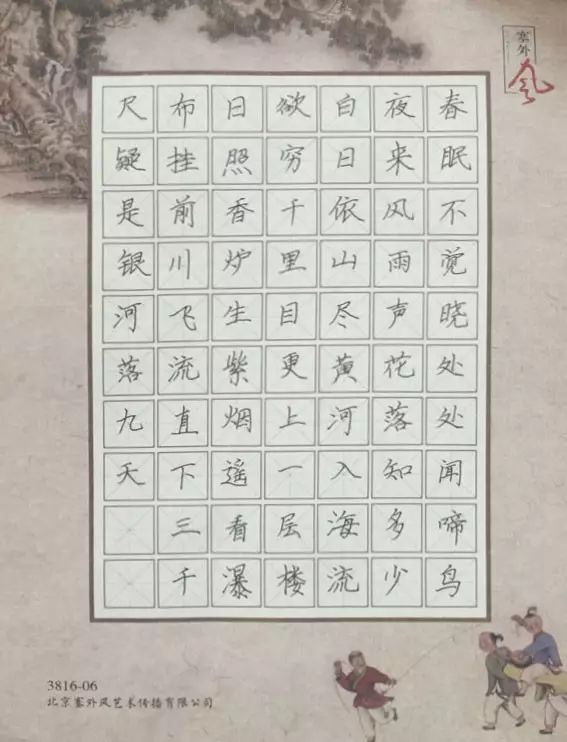 塞外风
春眠不觉晓处处闻啼鸟
夜来风雨声花落知多少
白日依山尽黄河入海流
欲穷千里目更上一层楼
日照香炉生紫烟遥看瀑
布挂前川飞流直下三千
尺疑是银河落九天
3816-06
北京塞外风艺术传播有限公司